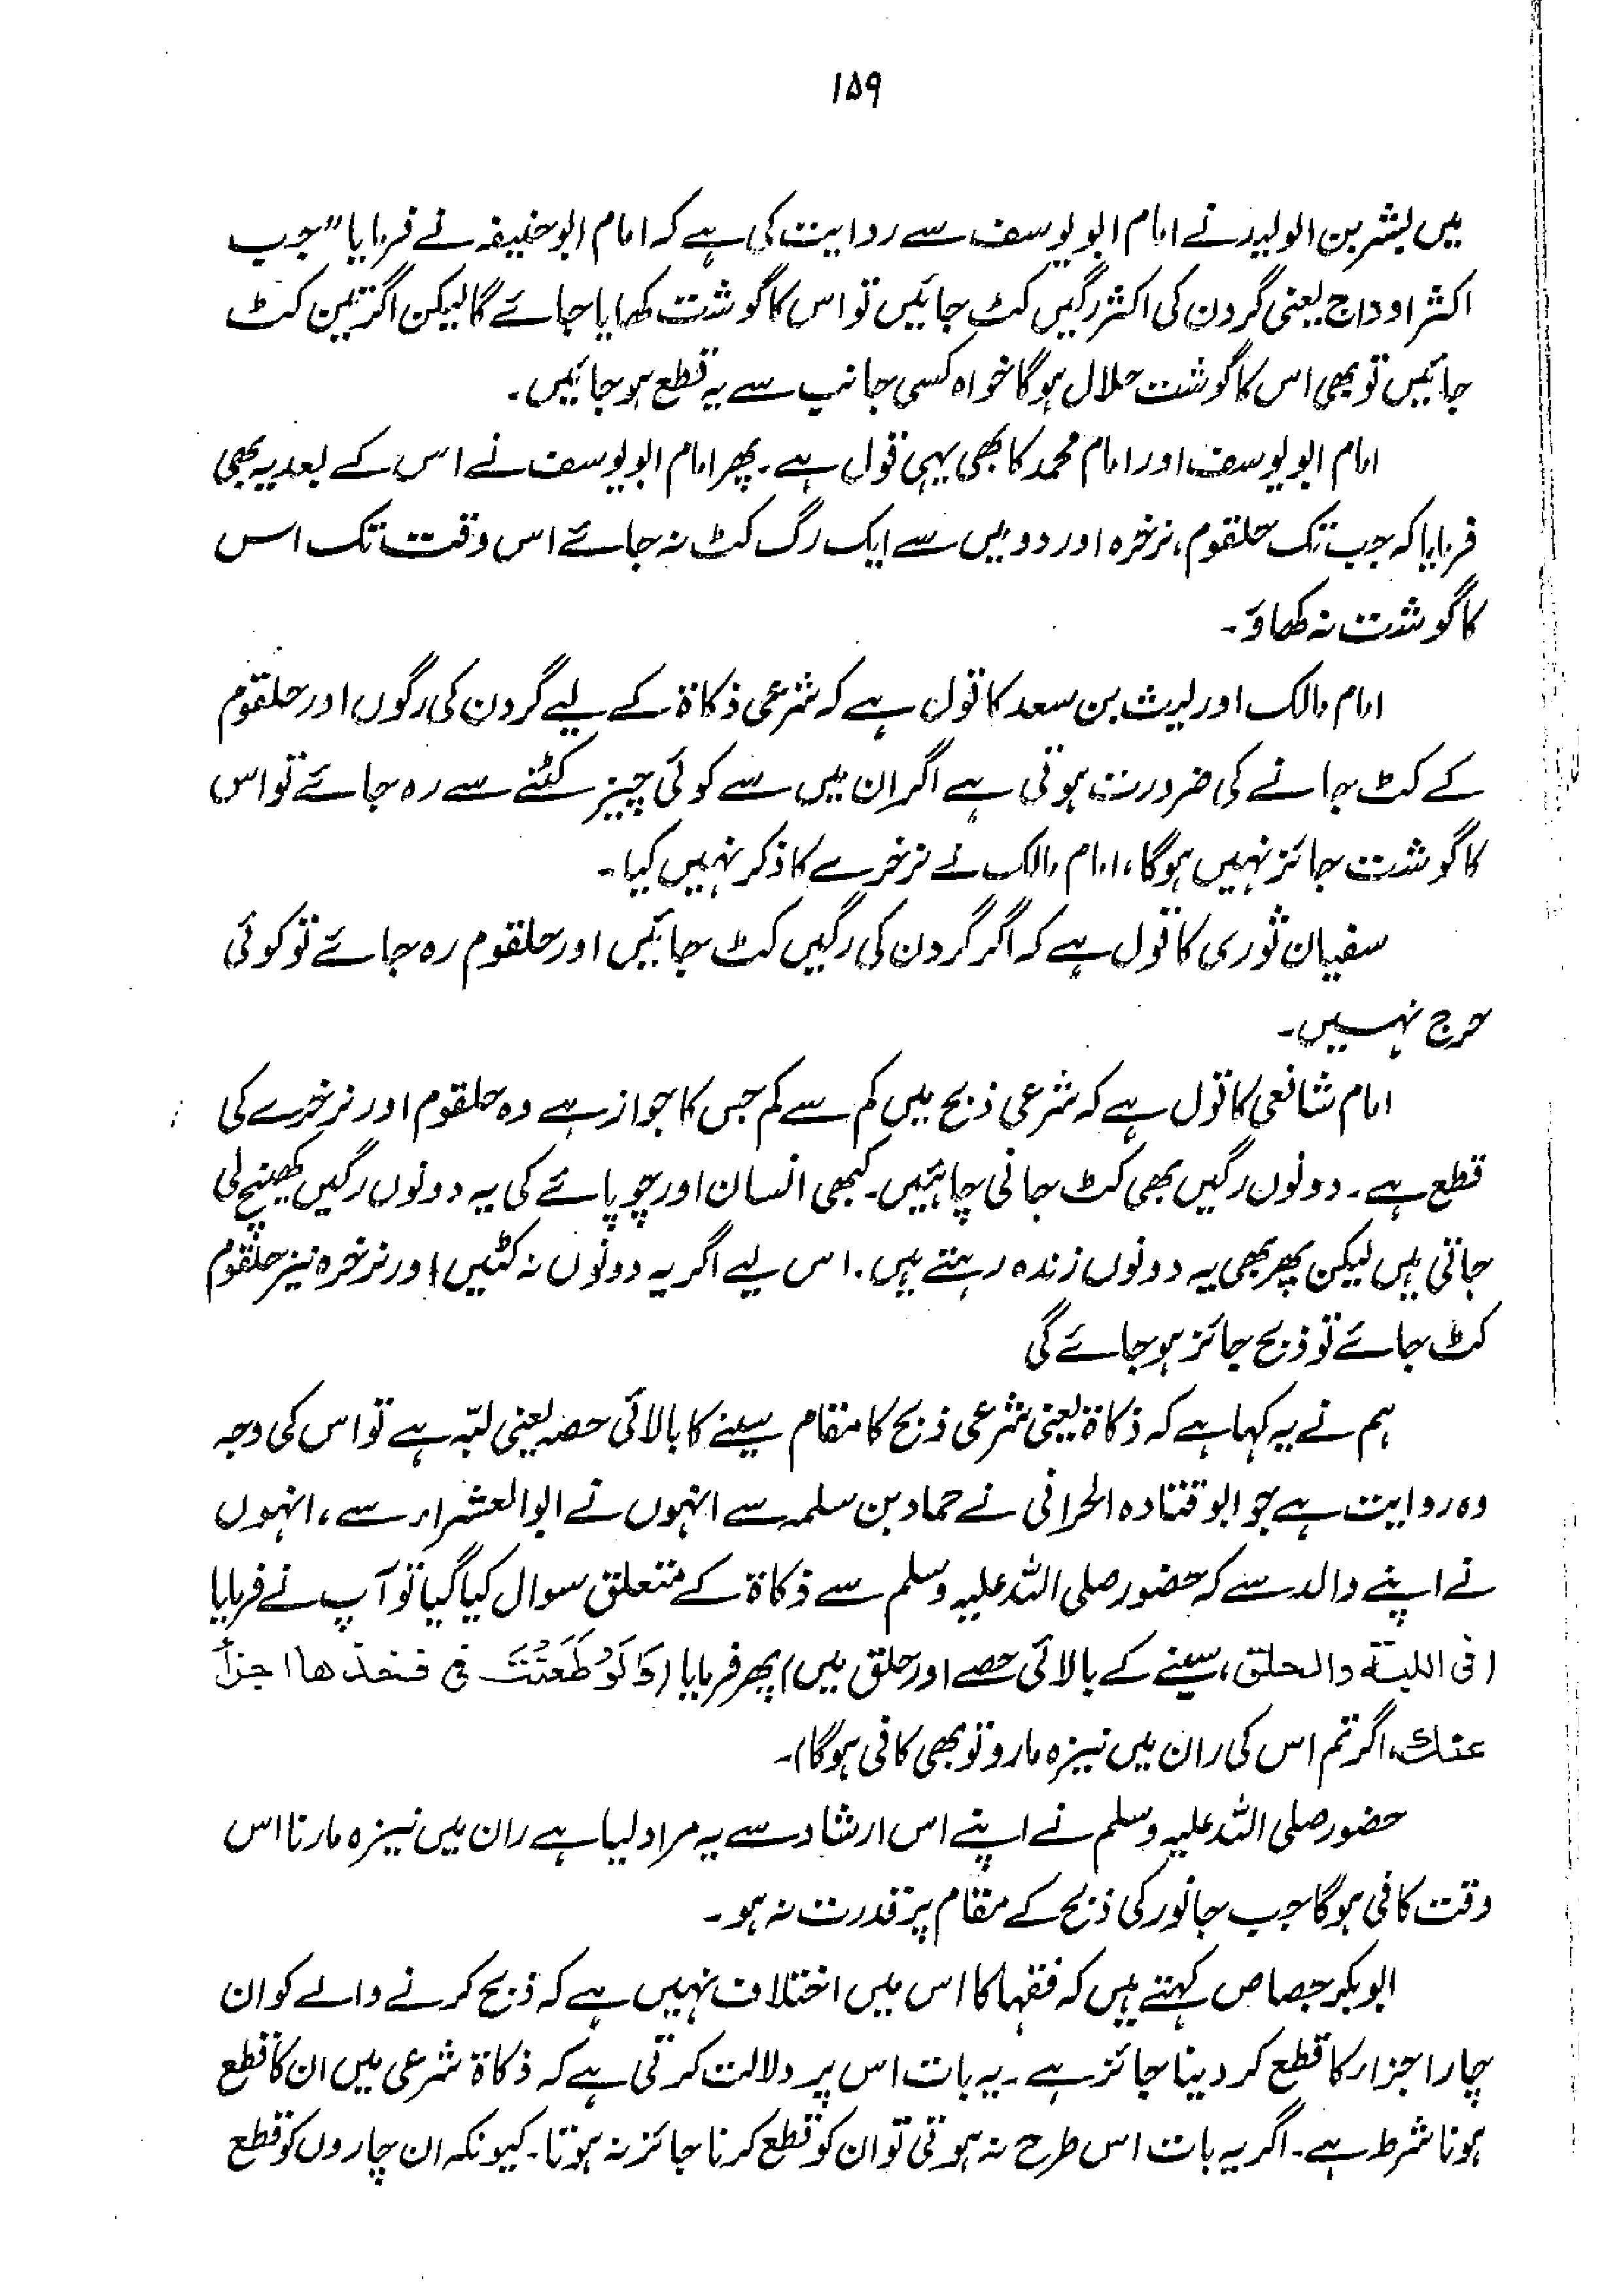 ۱۵۹
میں بشر بن الولید نے امام ابو یوسف سے روایت کی ہے کہ امام ابو حنیفہ نے فرمایا "جب
اکثر اوداج یعنی گردن کی اکثر رگیں کٹ جائیں تو اس کا گوشت کھایا جائے گا لیکن اگر تین کٹ
جائیں تو بھی اس کا گوشت حلال ہوگا خواہ کسی جانب سے یہ قطع ہو جائیں۔
امام ابو یوسف اور امام محمد کا بھی یہی قول ہے۔ پھر امام ابو یوسف نے اس کے بعد یہ بھی
فرمایا کہ جب تک حلقوم، نرخرہ اور دو میں سے ایک رگ کٹ نہ جائے اس وقت تک اس
کا گوشت نہ کھاؤ۔
امام مالک اور لیث بن سعد کا قول ہے کہ شرعی ذکاۃ کے لیے گردن کی رگوں اور حلقوم
کے کٹ جانے کی ضرورت ہوتی ہے اگر ان میں سے کوئی چیز کٹنے سے رہ جائے تو اس
کا گوشت جائز نہیں ہوگا، امام مالک نے نرخرے کا ذکر نہیں کیا۔
سفیان ثوری کا قول ہے کہ اگر گردن کی رگیں کٹ جائیں اور حلقوم رہ جائے تو کوئی
حرج نہیں۔
امام شافعی کا قول ہے کہ شرعی ذبح میں کم سے کم جس کا جواز ہے وہ حلقوم اور نرخرے کی
قطع ہے۔ دونوں رگیں بھی کٹ جانی چاہئیں۔ کبھی انسان اور چوپائے کی یہ دونوں رگیں کھینچ لی
جاتی ہیں لیکن پھر بھی یہ دونوں زندہ رہتے ہیں۔ اس لیے اگر یہ دونوں نہ کٹیں اور نرخرہ نیز حلقوم
کٹ جائے تو ذبح جائز ہو جائے گی
ہم نے یہ کہا ہے کہ ذکاۃ یعنی شرعی ذبح کا مقام سینے کا بالائی حصہ یعنی لبّہ ہے تو اس کی وجہ
وہ روایت ہے جو ابو قتادہ الحرانی نے حماد بن سلمہ سے انہوں نے ابوالعشراء سے، انہوں
نے اپنے والد سے کہ حضور صلی اللہ علیہ وسلم سے ذکاۃ کے متعلق سوال کیا گیا تو آپ نے فرمایا
(فی اللبۃ والحلق، سینے کے بالائی حصے اور حلق میں) پھر فرمایا (وَلَوْ طَعَنْتَ فی فخذھا اجزأ
عنك، اگر تم اس کی ران میں نیزہ مارو تو بھی کافی ہوگا)۔
حضور صلی اللہ علیہ وسلم نے اپنے اس ارشاد سے یہ مراد لیا ہے ران میں نیزہ مارنا اس
وقت کافی ہوگا جب جانور کی ذبح کے مقام پر قدرت نہ ہو۔
ابوبکر جصاص کہتے ہیں کہ فقہا کا اس میں اختلاف نہیں ہے کہ ذبح کرنے والے کو ان
چار اجزار کا قطع کر دینا جائز ہے۔ یہ بات اس پر دلالت کرتی ہے کہ ذکاۃ شرعی میں ان کا قطع
ہونا شرط ہے۔ اگر یہ بات اس طرح نہ ہوتی تو ان کو قطع کرنا جائز نہ ہوتا۔ کیونکہ ان چاروں کو قطع